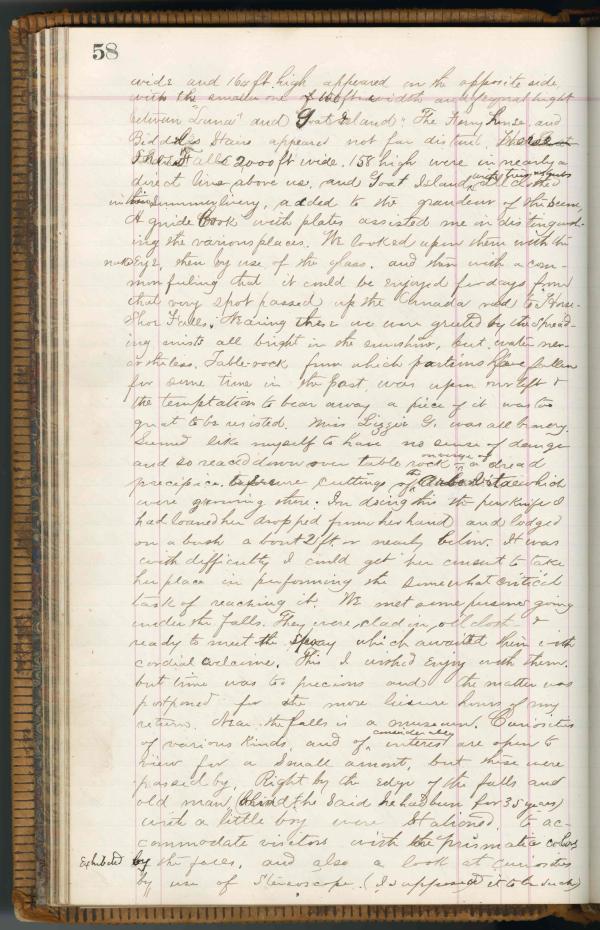 58
wide and 164 ft. high appeared on the opposite side
with the smaller one of 160 ft. in width and equal height
between "Luna" and Goat Island". The Ferry house, and
Biddles Stairs appeared not far distant.
Falls 2000 ft wide. 158 high were in nearly a
direct line above us, and Goat Island, with trees all clothed
in summer livery, added to the grandeur of the scene,
A guide book with plates assisted me in distinguish-
ing the various places. We looked upon them with the
naked Eye, then by use of the glass. and then with a com-
mon feeling that it could be enjoyed for days from
that very spot passed up the Canada road to Horse-
Shoe Falls. Nearing these we were greeted by the spread-
ing mists all bright in the sunshine, but, water nev-
ertheless. Table-rock from which portions have fallen
for some time in the past, was upon our left &
the temptation to bear away a piece of it was too
great to be resisted. Miss Lizzie G. was all bravery.
Seemed like myself to have no sense of danger
and so reached down over table rock on verge of a dread
precipice. to secure cuttings of the which
were growing there. In doing this the penknife I
had loaned her dropped from her hand and lodged
on a bush about 2 ft. or nearly below. It was
with difficulty I could get her consent to take
her place in performing the somewhat critical
task of reaching it. We met some persons going
under the falls. They were clad in oil cloth &
ready to meet the spray which awaited them with
cordial welcome. This I wished enjoy with them.
but time was too precious and the matter was
postponed for the more leisure hours of my
return. Near the falls is a museum. Curiosities
of various kinds, and of considerable interest are open to
view for a small amont, but these were
passed by. Right by the edge of the falls and
old man (blind, he said he had been for 35 years)
with a little boy were stationed to ac-
commodate visitors with the prismatic colors
Exhibited by the faces, and also a look at curiosities
by use of Stereoscope. (I supposed it to be such)